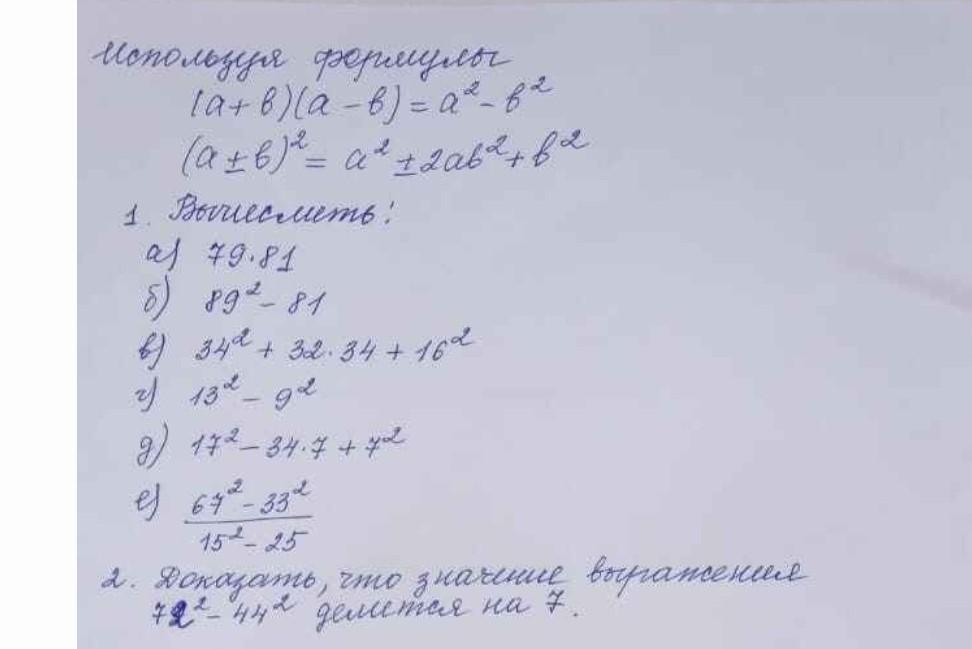 Используя формулы
(a + b)(a - b) = a² - b²
(a ± b)² = a² ± 2ab² + b²
1. Вычеслить:
а) 79·81
б) 89² - 81
в) 34² + 32·34 + 16²
г) 13² - 9²
д) 17² - 34·7 + 7²
е) (67² - 33²) / (15² - 25)
2. Доказать, что значение выражения
72² - 44² делится на 7.